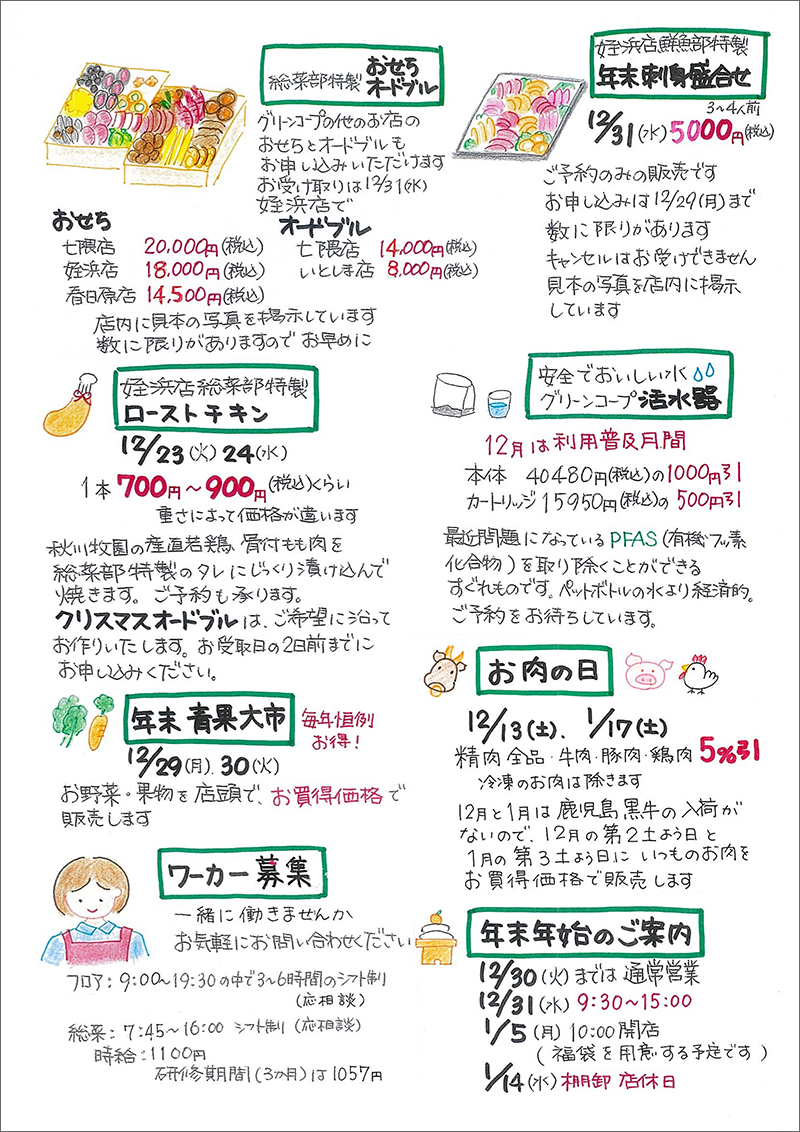 総菜部特製 おせち
オードブル
グリーンコープの他のお店の
おせちとオードブルも
お申し込みいただけます
お受け取りは12/31(水)
姪浜店で
おせち
七隈店 20,000円(税込)
姪浜店 18,000円(税込)
春日原店 14,500円(税込)
オードブル
七隈店 14,000円(税込)
いとしま店 8,000円(税込)
店内に見本の写真を掲示しています
数に限りがありますので お早めに
姪浜店鮮魚部特製
年末刺身盛合せ
3～4人前
12/31(水)5000円(税込)
ご予約のみの販売です
お申し込みは12/29(月)まで
数に限りがあります
キャンセルはお受けできません
見本の写真を店内に掲示
しています
姪浜店総菜部特製
ローストチキン
12/23(火)24(水)
1本 700円～900円(税込)くらい
重さによって価格が違います
秋川牧園の産直若鶏、骨付もも肉を
総菜部特製のタレにじっくり漬け込んで
焼きます。ご予約も承ります。
クリスマスオードブルは、ご希望に沿って
お作りいたします。お受取日の2日前までに
お申し込みください。
安全でおいしい水
グリーンコープ 活水器
12月は利用普及月間
本体 40480円(税込)の1000円引
カートリッジ15950円(税込)の 500円引
最近問題になっているPFAS(有機フッ素
化合物)を取り除くことができる
すぐれものです。ペットボトルの水より経済的。
ご予約をお待ちしています。
年末 青果大市
毎年恒例
お得!
12/29(月).30(火)
お野菜・果物を店頭で、お買得価格で
販売します
お肉の日
12/13(土)、1/17(土)
精肉全品・牛肉・豚肉・鶏肉 5%引
冷凍のお肉は除きます
12月と1月は鹿児島黒牛の入荷が
ないので、12月の第2土よう日と
1月の第3土よう日に いつものお肉を
お買得価格で販売します
ワーカー募集
一緒に働きませんか
お気軽にお問い合わせください
フロア:9:00～19:30の中で3～6時間のシフト制
(応相談)
総菜:7:45～16:00 シフト制(応相談)
時給:1100円
研修期間(3か月)は1057円
年末年始のご案内
12/30(火)までは 通常営業
12/31(水) 9:30～15:00
1/5(月)10:00開店
(福袋を用意する予定です)
1/14(水)棚卸 店休日